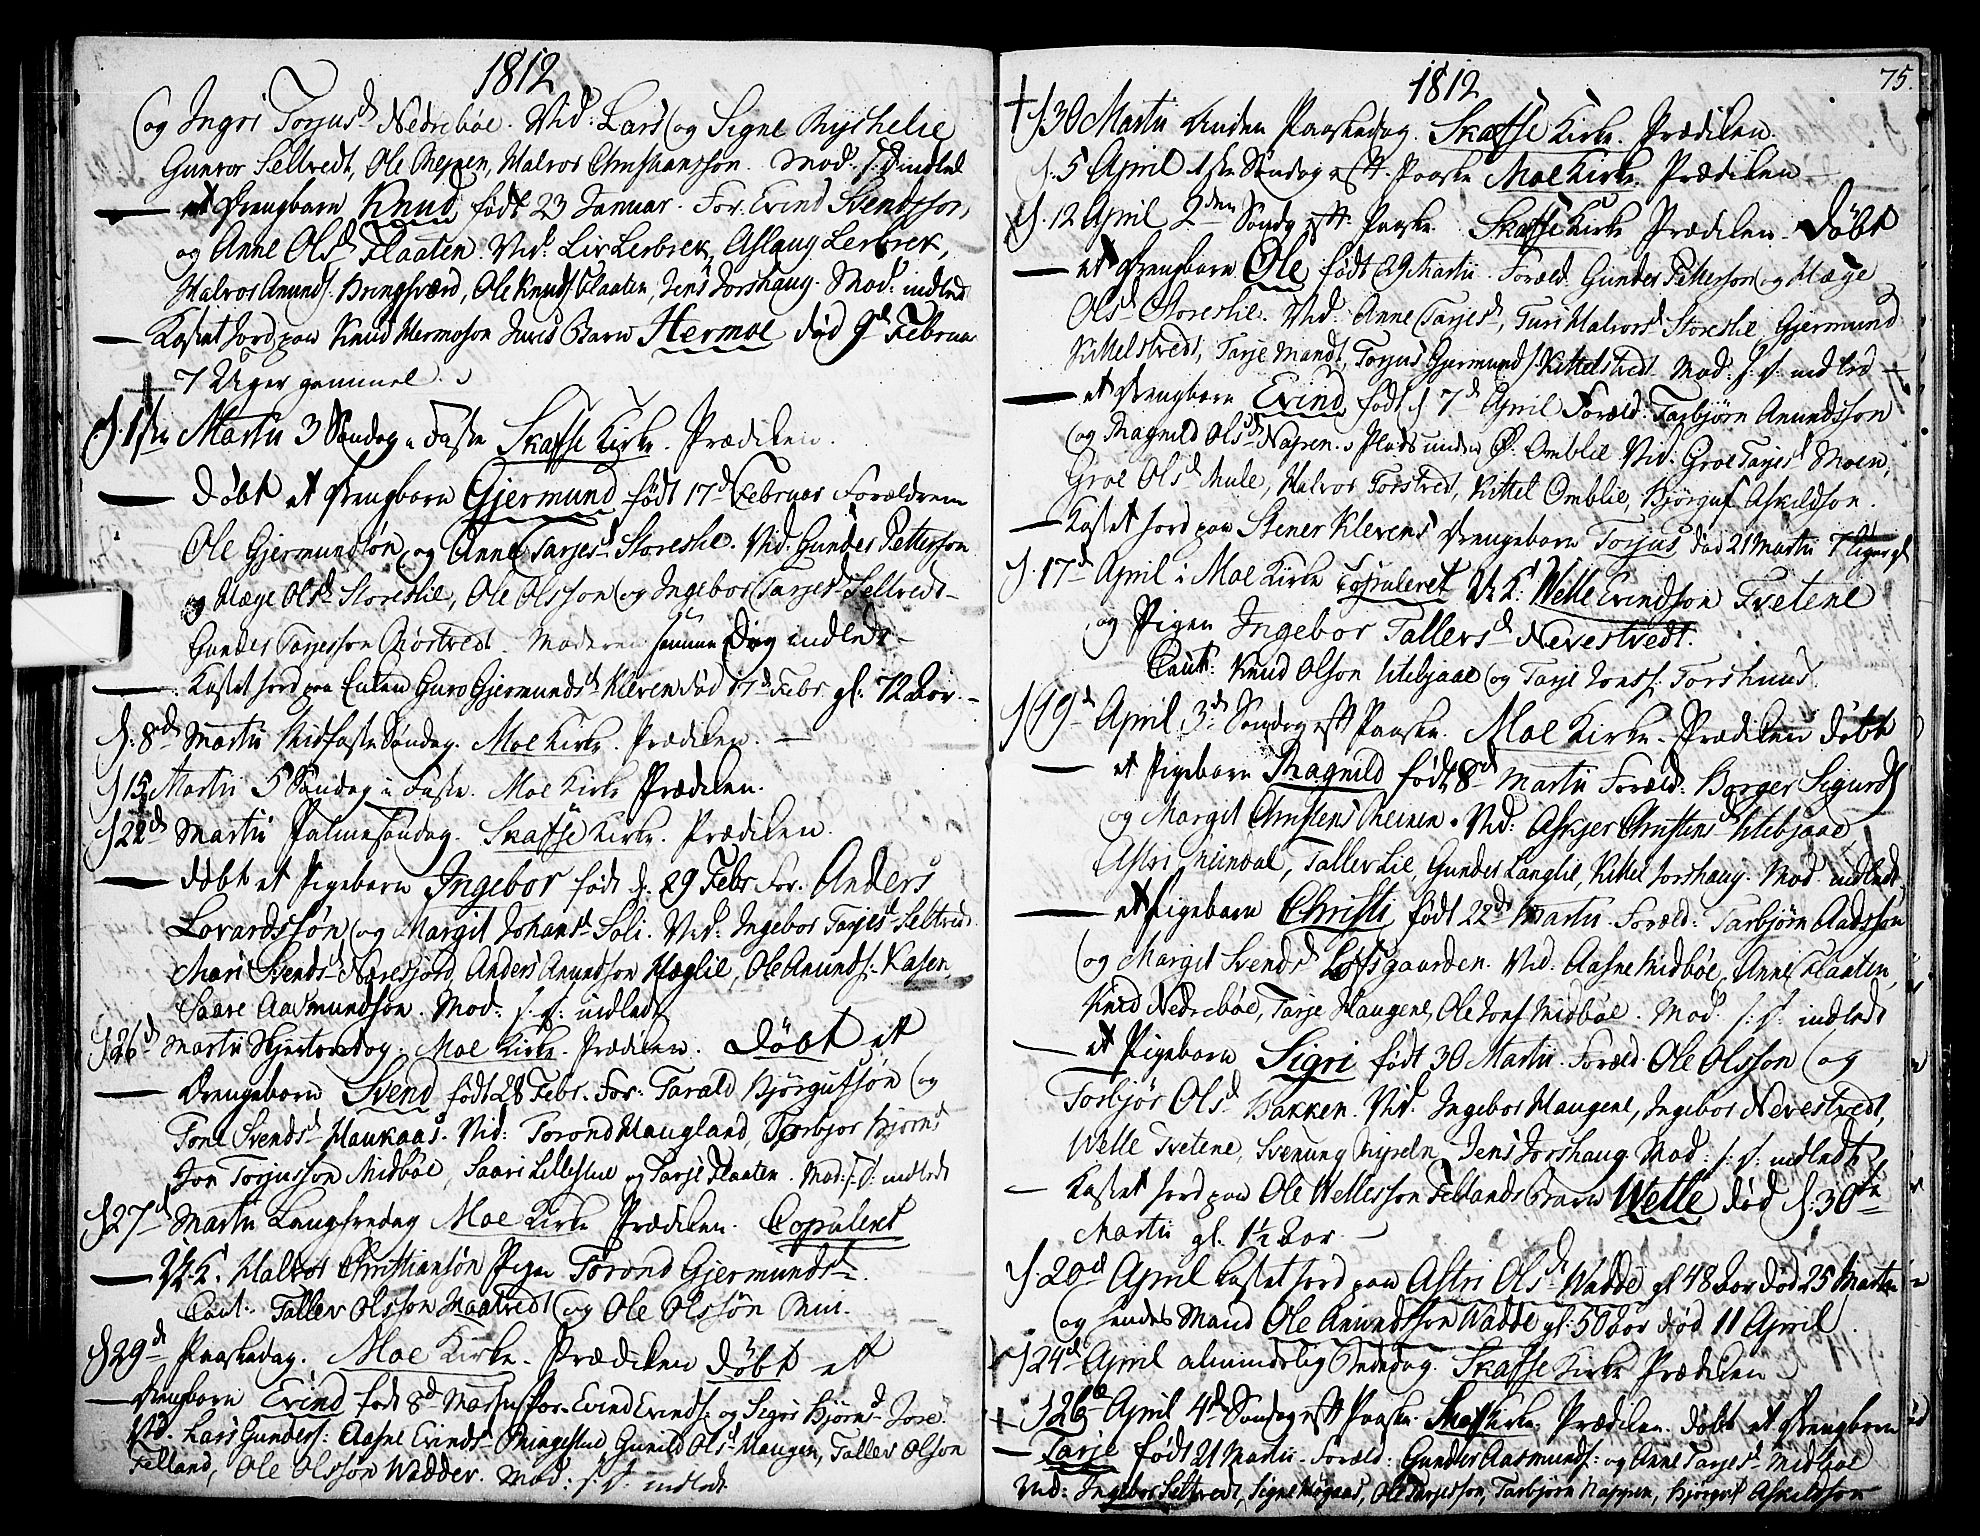 1812
og Ingri Torjusd Nedrebøe. Vid: Lars og Signe Ryshelie
Gunvor Seltvedt, Ole Meyen, Halvor Christiansøn. Mod. s. D indled
et Drengbarn Knud født 23 Januar. For. Evind Svendssøn
og Anne Olsd Flaaten. Vid. Liv Lerbrek, Aslaug Lerbrek,
Halvor Anunds. Bringsværd, Ole Knuds Flaaten, Jens Jorshaug. Mod: indled
Kastet Jord paa Knud Hermosøn Barn Hermoe død 9d Februar
7 Uger gammel.
d. 1ste Martii 3 Søndag i Faste Skafse Kirke. Prædiken.
Døbt et Drengbarn Gjermund født 17d Februar Forældrene
Ole Gjermundsøn og Anne Tarjesd Storeslie. Vid. Gunder Pettersøn
og Hæge Olsd Storeslie, Ole Olsson og Ingebor Tarjesd Seltvedt
Gunder Tarjesson Røstvedt. Moderen samme Dag indledt
Kastet Jord paa Enken Guro Gjermundsd Kleven død 17d Febr. gl. 72 Aar.
d. 8de Martii Midfaste Søndag. Moe Kirke. Prædiken.
d 15 Martii 5 Søndag i Faste. Moe Kirke Prædiken.
d 22d Martii Palmesøndag. Skafse Kirke. Prædiken.
døbt et Pigebarn Ingebor født d. 29 Febr For. Anders
Lovardssøn og Margit Johansd Soli. Vid: Ingebor Tarjesd Seltvedt
Mari Svendsd Næresjord, Anders Anundson Hæglie, Ole Anunds: Kasen
Saare Aasmundsøn. Mod: s. D: indledt
d 26d Martii Skjertorsdag. Moe Kirke. Prædiken. Døbt et
Drengebarn Svend født 28 Febr. For: Tarald Bjørgufsøn og
Tone Svendsd Haukaas. Vid: Torond Haugland, Torbjor Bjørnsd
Jon Torjusson Midbøe, Saari Lillestue og Tarje Flaaten. Mod: s. D: indledt
d 27d Martii Langfredag Moe Kirke Prædiken. Copuleret
U. K. Halvor Christiansøn Pigen Torond Gjermundsd.
Caut: Tallev Olsson Haatvedt og Ole Olssøn
d 29d Paaskedag. Moe Kirke. Prædiken døbt et
Drengbarn Evind født 8d Martii For. Evind Evinds: og Sigri Bjørnsd Jore
Vid. Lars Gunders: Aasne Evindsd Ringestue, Gunild Olsd Haugen, Tallev Olsøn
Felland, Ole Olsson Wadder. Mod: s. D. indledt
75.
1812
d. 30 Martii Anden Paaskedag. Skafse Kirke. Prædiken.
d. 5 April 1ste Søndag eft. Paaske Moe Kirke. Prædiken
d. 12 April 2den Søndag eft. Paaske. Skafse Kirke Prædiken. Døbt
et Drengbarn Ole født 29 Martii. Foræld. Gunder Pettersøn og Hæge
Olsd Storeslie. Vid: Anne Tarjesd, Turi Halvorsd Storeslie, Gjermund
Kittelstvedt, Tarje Mandt, Torjus Gjermunds Kittelstvedt. Mod: s. D. indled
et Drengbarn Evind født d 7d April Foræld: Tarbjørn Anundssøn
og Ragnild Olsd Nappen. Plads under Ø: Omblie Vid. Groe Tarjesd Moen,
Groe Olsd Mule, Halvor Torstved, Kittel Omblie, Bjørguf Askildsøn.
Kastet Jord paa Stener Klevens Drengebarn Torjus død 21 Martii 7 Uger gl
d. 17d April i Moe Kirke Copuleret U: K: Welle Evindsøn Tvetene
og Pigen Ingebor Tallevsd Nevestvedt.
Caut. Knud Olson Utebjaae og Tarje Jons. Forshuus.
d 19d April 3d Søndag eft Paaske. Moe Kirke. Prædiken døbt
et Pigebarn Ragnild født 8d Martii Foræld: Borger Sigurds
og Margit Christensd Meinen. Vid: Askjer Christensd Utebjaae
Astri Meindal, Tallev Lie, Gunder Langlie, Kittel Jorshaug. Mod. indledt
et Pigebarn Christi født 22d Martii. Foræld: Tarbjørn Aadssøn
og Margit Svendsd Loftsgaarden. Vid. Aasne Midbøe, Anne Flaaten,
Knud Nedrebøe, Tarje Haugene, Ole Jons Midbøe. Mod. s. D. indledt
et Pigebarn Sigri født 30 Martii. Foræld. Ole Olsson og
Torbjør Olsd Bakken. Vid. Ingebor Haugene, Ingebor Nevestvedt,
Welle Tvetene, Svenung Jens Jorshaug Mod: s. D: indledt
Kastet Jord paa Ole Wellesson Fellands Barn Welle død d. 30te
Martii gl. 1½ Aar.
d. 20d April Kastet Jord paa Astri Olsd Wadde gl 48 Aar død 25 Martii
og hendes Mand Ole Anundssøn Wadde gl. 50 Aar død 11 April.
d 24d April almindelig Bededag. Skafse Kirke Prædiken
d 26d April 4d Søndag eft Paaske. Skafse Kirke. Prædiken. døbt et Drengbarn
Tarje født 21 Martii. Foræld: Gunder Aasmunds: og Anne Tarjesd Midbøe
Vid: Ingebor Seltvedt, Signe Høgaas, Ole Tarjesson, Tarbjørn Nappen, Bjørguf Askildsøn